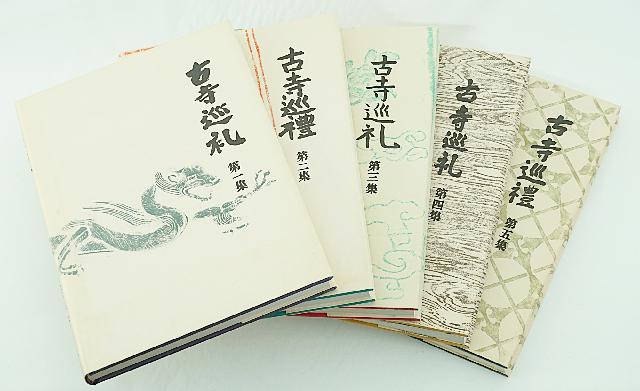 古寺巡礼
第一集
古寺巡禮
第二集
古寺巡礼
第三集
古寺巡礼
第四集
古寺巡禮
第五集